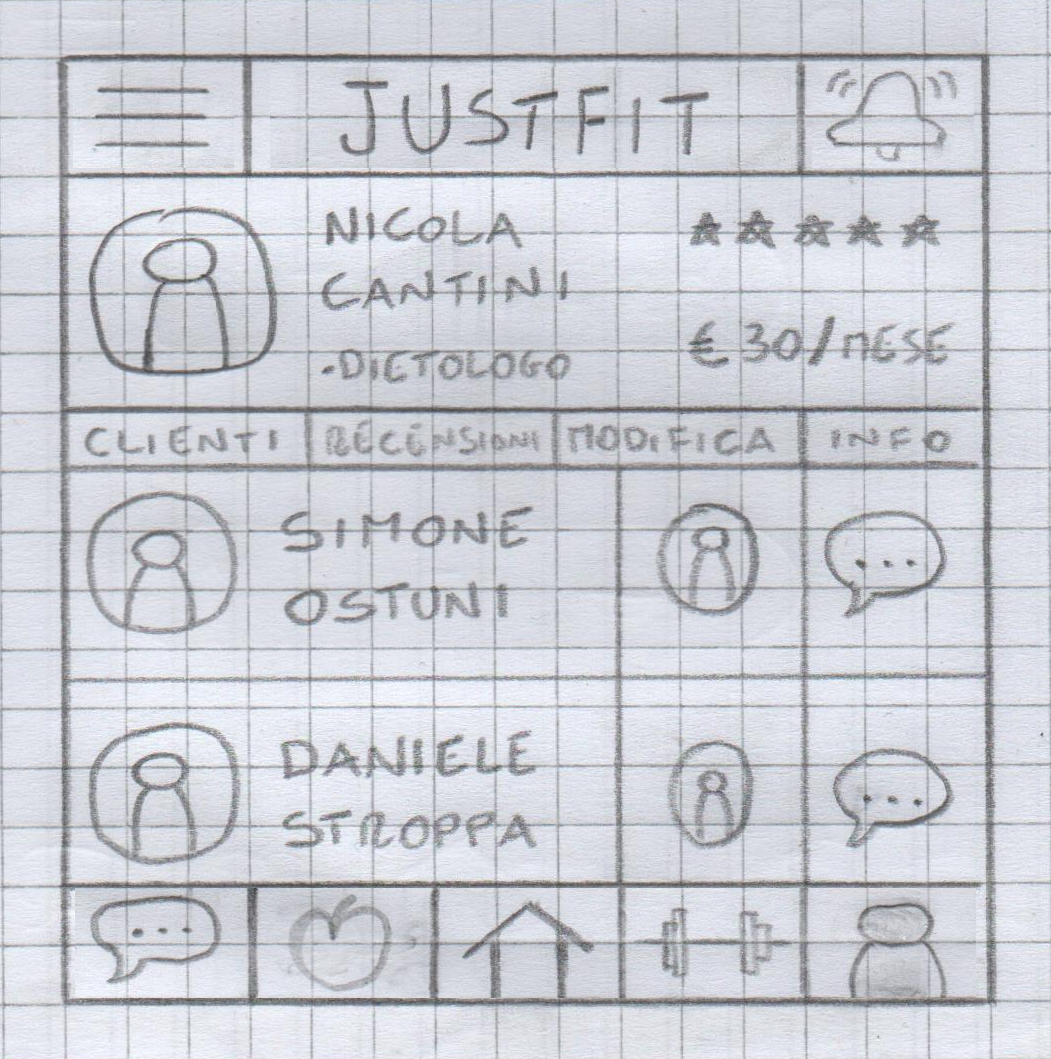 JUSTFIT
NICOLA
CANTINI
•DIETOLOGO
€ 30/MESE
CLIENTI RECENSIONI MODIFICA INFO
SIMONE
OSTUNI
DANIELE
STROPPA